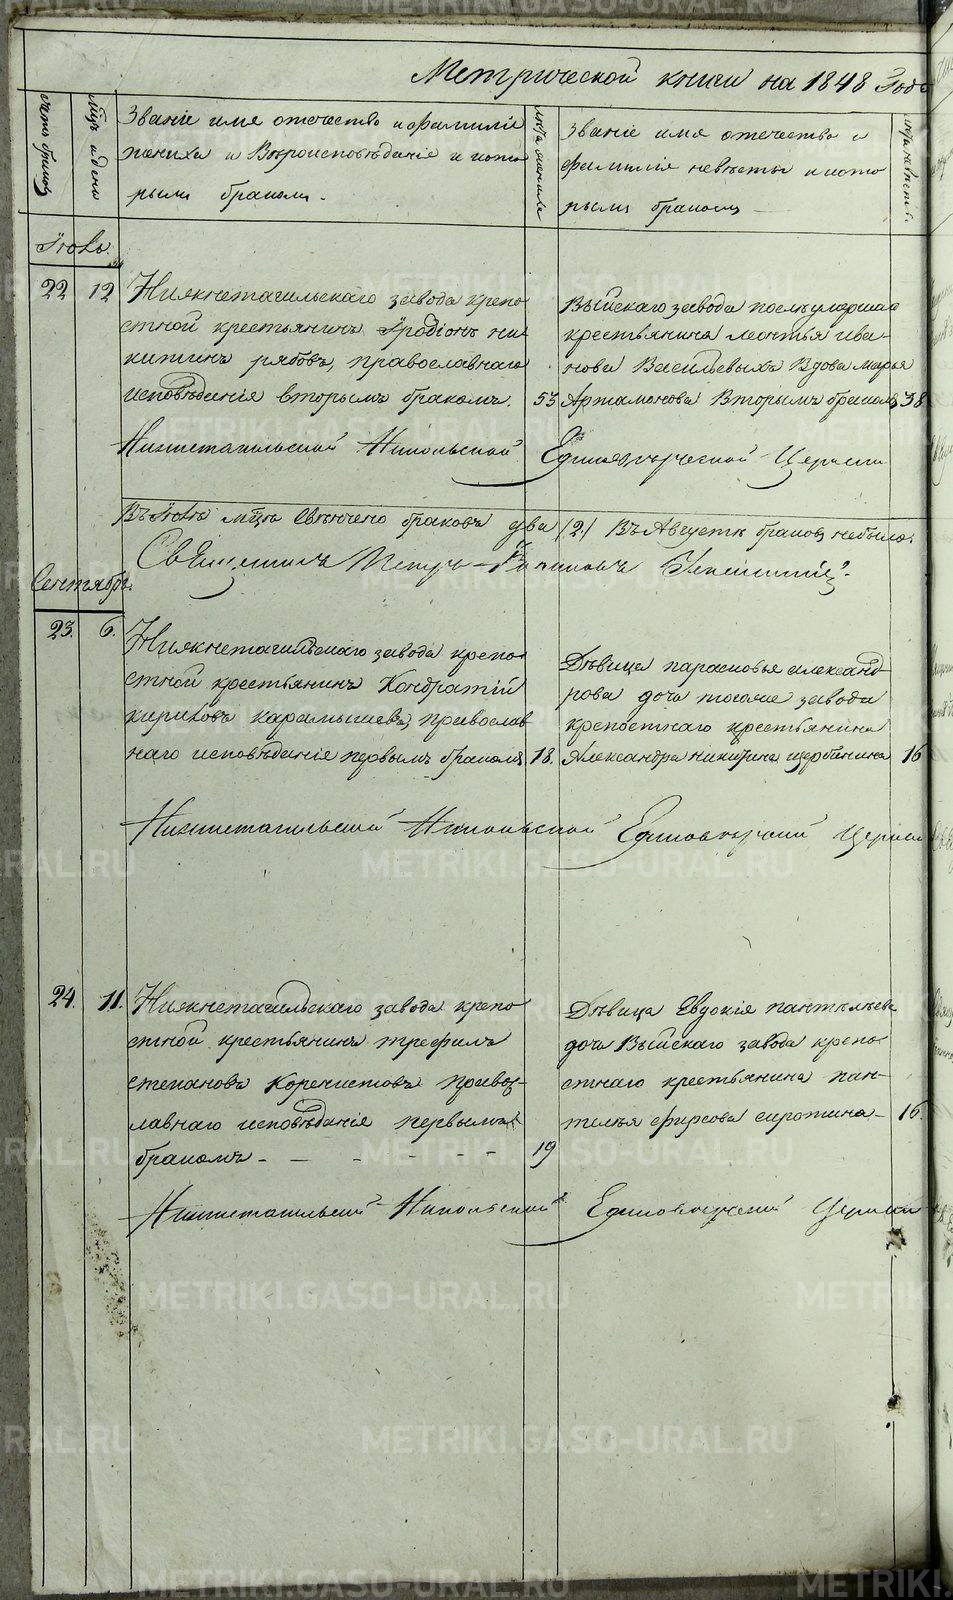 Метрической книги на 1848 Года
Счетъ браковъ
Мцъ и дни
Званіе имя отечество и фамиліе
жениха и Вѣроисповѣданіе и кото
рымъ бракомъ.
лѣта жениха
Званіе имя отечество и
фамилія невѣсты и кото
рымъ бракомъ
лѣта невѣсты
Іюль.
22 12 Нижнетагильскаго завода крепо
стной крестьянинъ Іродіонъ ни
китинъ рябовъ, православнаго
исповѣданія вторымъ бракомъ. 53
Выйскаго завода послѣ умершаго
крестьянина леонтья ива-
нова Васильевыхъ Вдова марья
Артамонова Вторымъ бракомъ 38
Нижнетагильской Никольской Единоверческой Церкви
Въ Іюлѣ мцѣ Свѣнчено браковъ два (2.) Въ Августѣ браковъ небыло.
Священникъ Петръ
Сентябрь.
23. 6. Нижнетагильскаго завода крепо
стной крестьянинъ Кондратій
кириловъ карамышевъ, православ
наго исповѣданія первымъ бракомъ 18.
Дѣвица парасковья александ
рова дочь тогоже завода
крепостнаго крестьянина
Александра никитина щербинина 16
Нижнетагильской Никольской Единоверческой Церкви
24. 11. Нижнетагильскаго завода крепо
стной крестьянинъ трефилъ
степановъ Коренистовъ правос-
лавнаго исповѣданія первымъ
бракомъ - - - - - - 19
Дѣвица Евдокія пантелѣева
дочь Выйскаго завода крепо
стнаго крестьянина пан-
телея фирсова сиротина - 16.
Нижнетагильской Никольской Единоверческой Церкви
METRIKI.GASO-URAL.RU